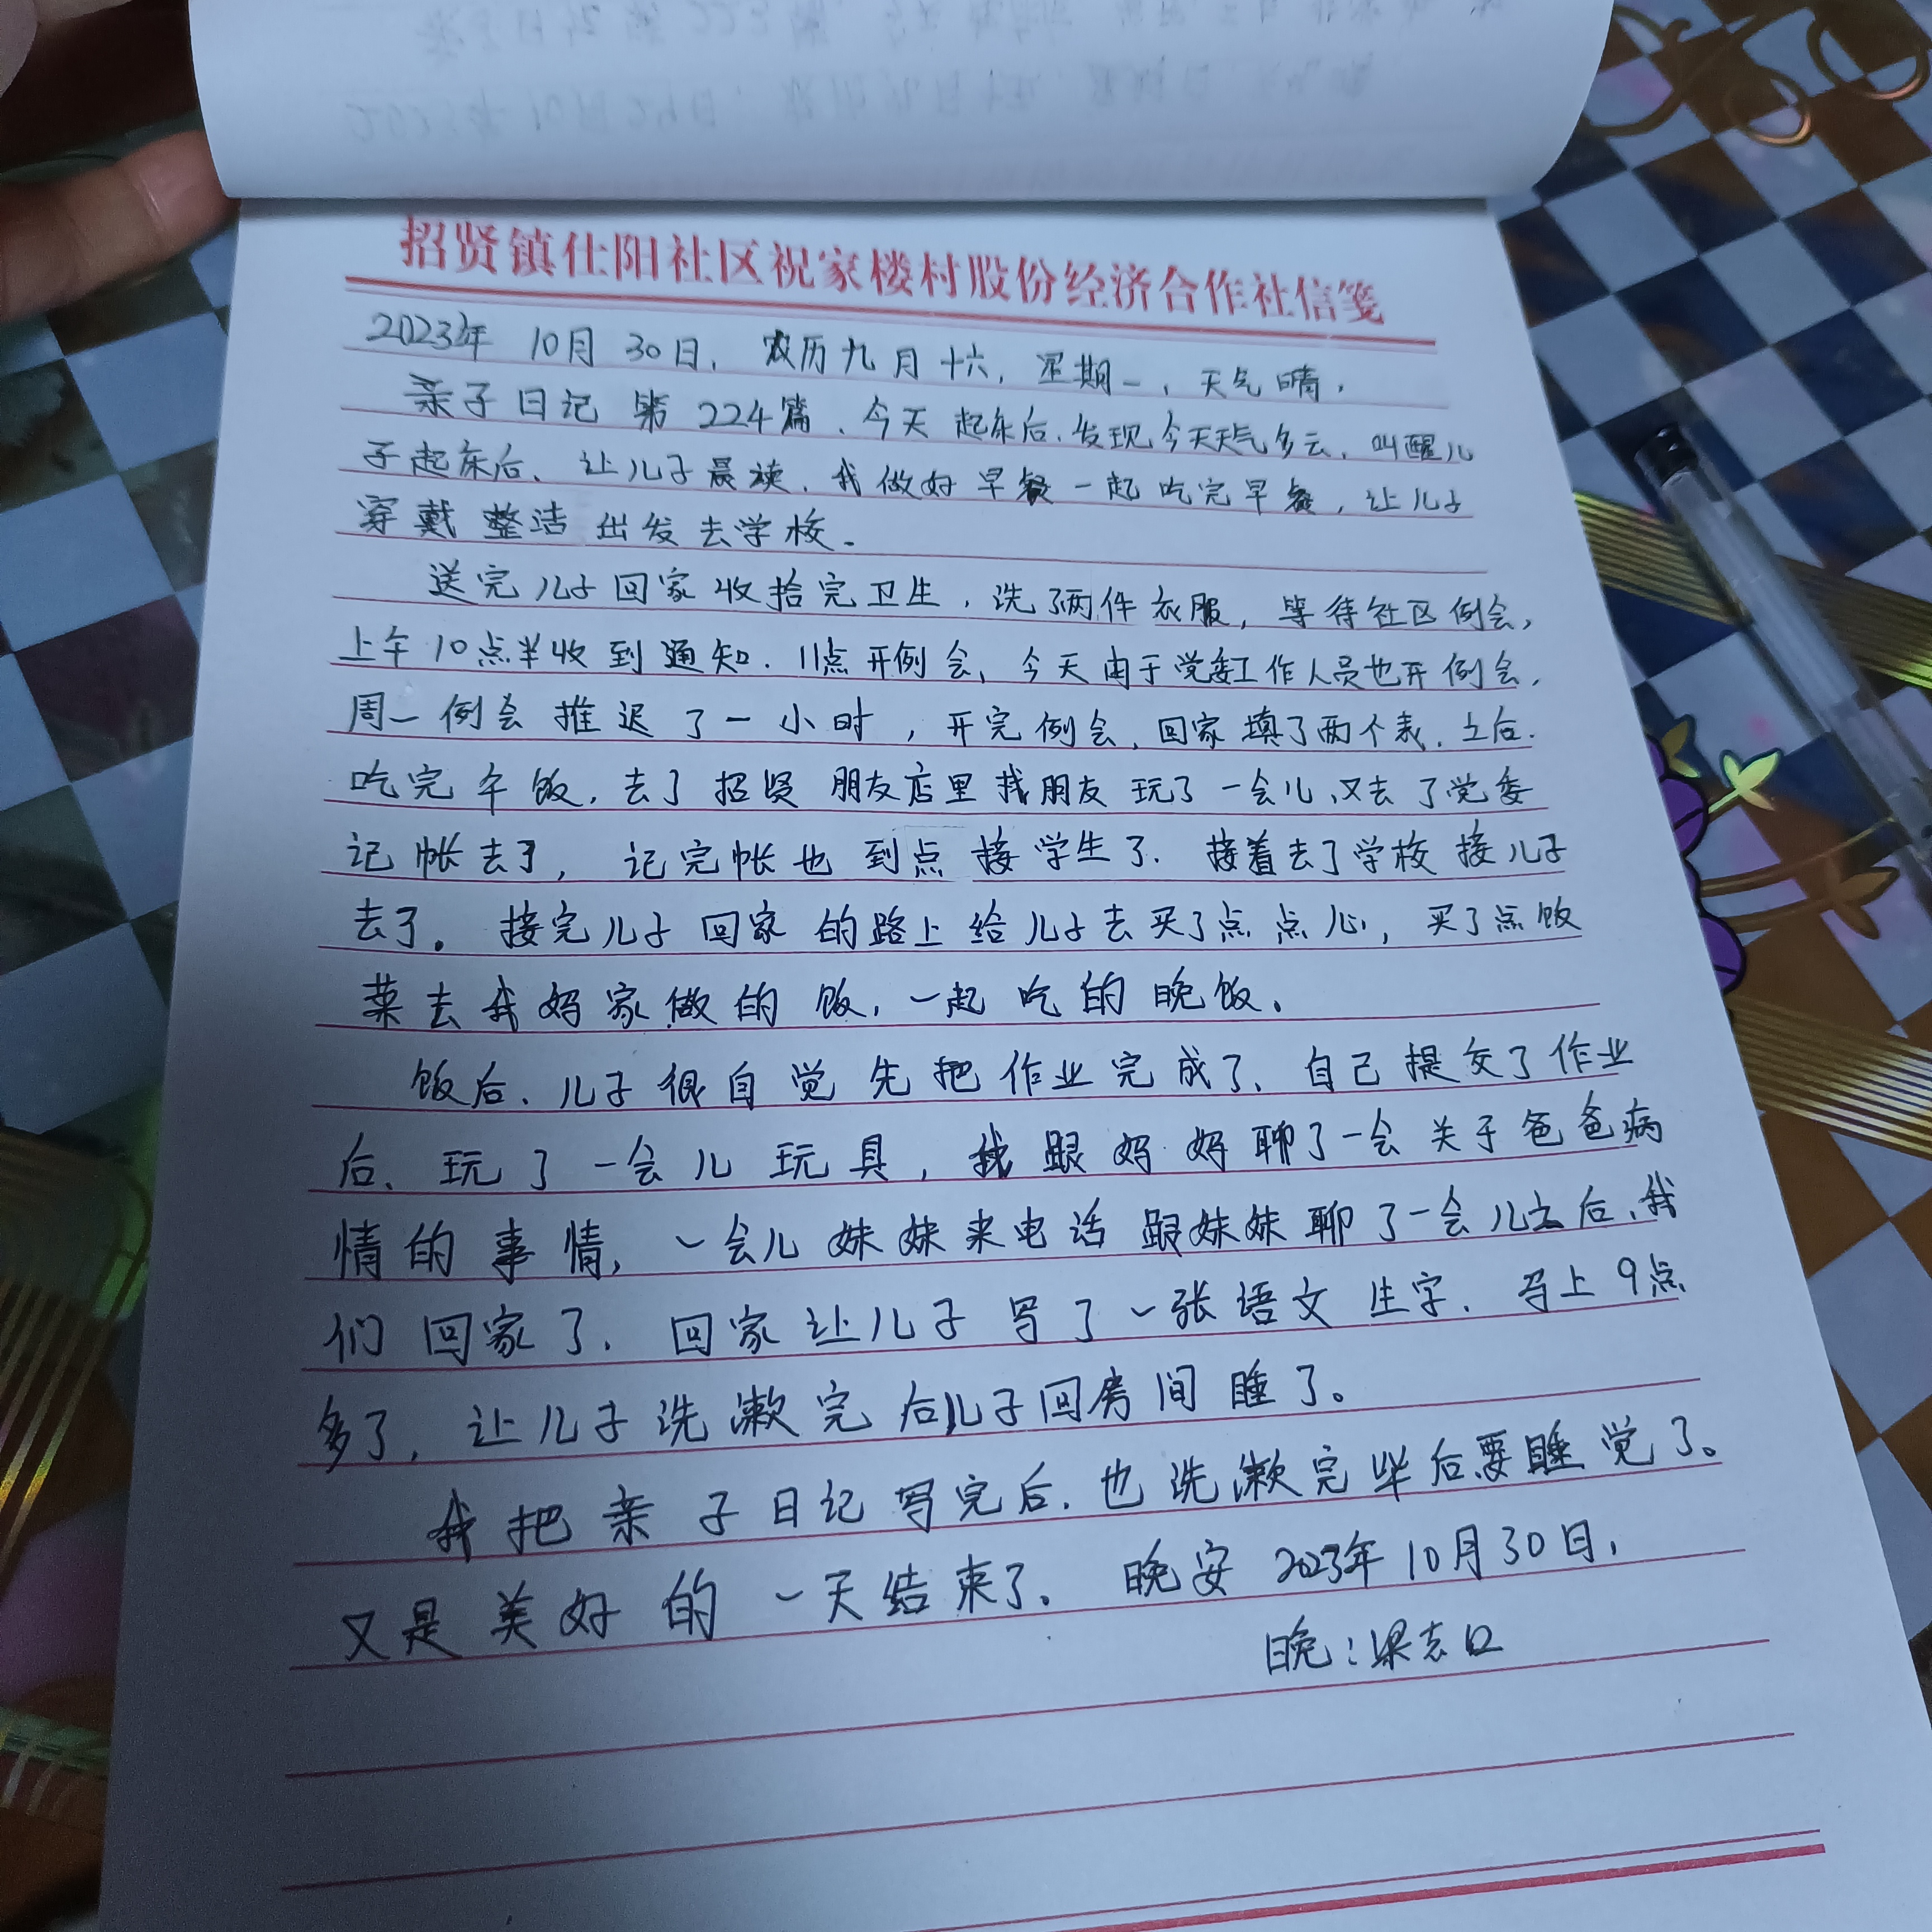 招贤镇仕阳社区祝家楼村股份经济合作社信笺
2023年 10月 30日，农历九月十六，星期一，天气晴，
亲子日记 第224篇、今天起床后、发现今天天气多云、叫醒儿
子起床后、让儿子晨读、我做好早餐一起吃完早餐，让儿子
穿戴整洁出发去学校。
送完儿子回家收拾完卫生，洗了两件衣服，等待社区例会，
上午10点半收到通知、11点开例会，今天由于党委工作人员也开例会，
周一例会推迟了一小时，开完例会、回家填了两个表、之后、
吃完午饭，去了招贤朋友店里找朋友玩了一会儿、又去了党委
记帐去了，记完帐也到点接学生了、接着去了学校接儿子
去了。接完儿子回家的路上给儿子去买了点点心，买了点饭
菜去我妈家做的饭，一起吃的晚饭。
饭后、儿子很自觉先把作业完成了、自己提交了作业
后、玩了一会儿玩具，我跟妈妈聊了一会关于爸爸病
情的事情，一会儿妹妹来电话跟妹妹聊了一会儿之后、我
们回家了、回家让儿子写了一张语文生字、马上9点
多了，让儿子洗漱完后儿子回房间睡了。
我把亲子日记写完后、也洗漱完毕后要睡觉了。
又是美好的一天结束了、晚安 2023年10月30日，
晚：梁志